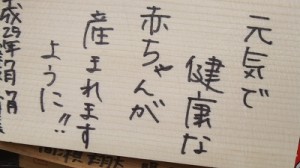 元気で
健康な
赤ちゃんが
産まれます
ように!!
成29年